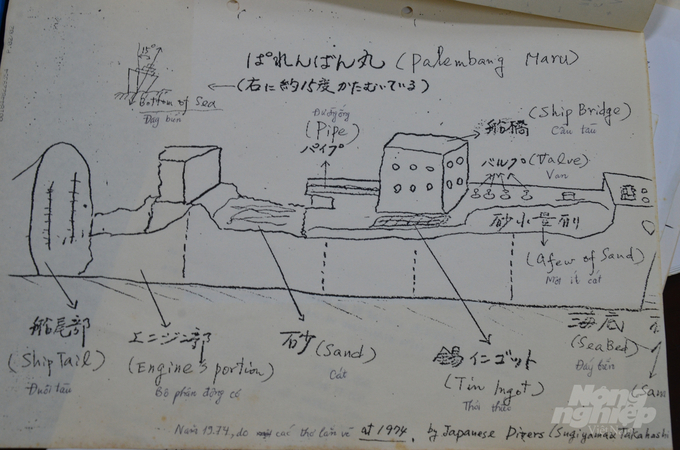 ぱれんばん丸 (Palembang Maru)
(右に約15度かたむいている)
15°
Bottom of Sea
Đáy biển
Đường ống
(Pipe)
パイプ
船橋
(Ship Bridge)
Cầu tàu
バルブ (Valve)
Van
砂少量
(A few of Sand)
Một ít cát
船尾部
(Ship Tail)
Đuôi tàu
エンジン部
(Engine's portion)
Bộ phận động cơ
砂 (Sand)
Cát
錫インゴット
(Tin Ingot)
Thỏi thiếc
海底
(Sea Bed)
Đáy biển
(San
Năm 1974, do các thợ lặn vẽ at 1974, by Japanese Divers (Sugiyama & Takahashi
Nông
nghiệp